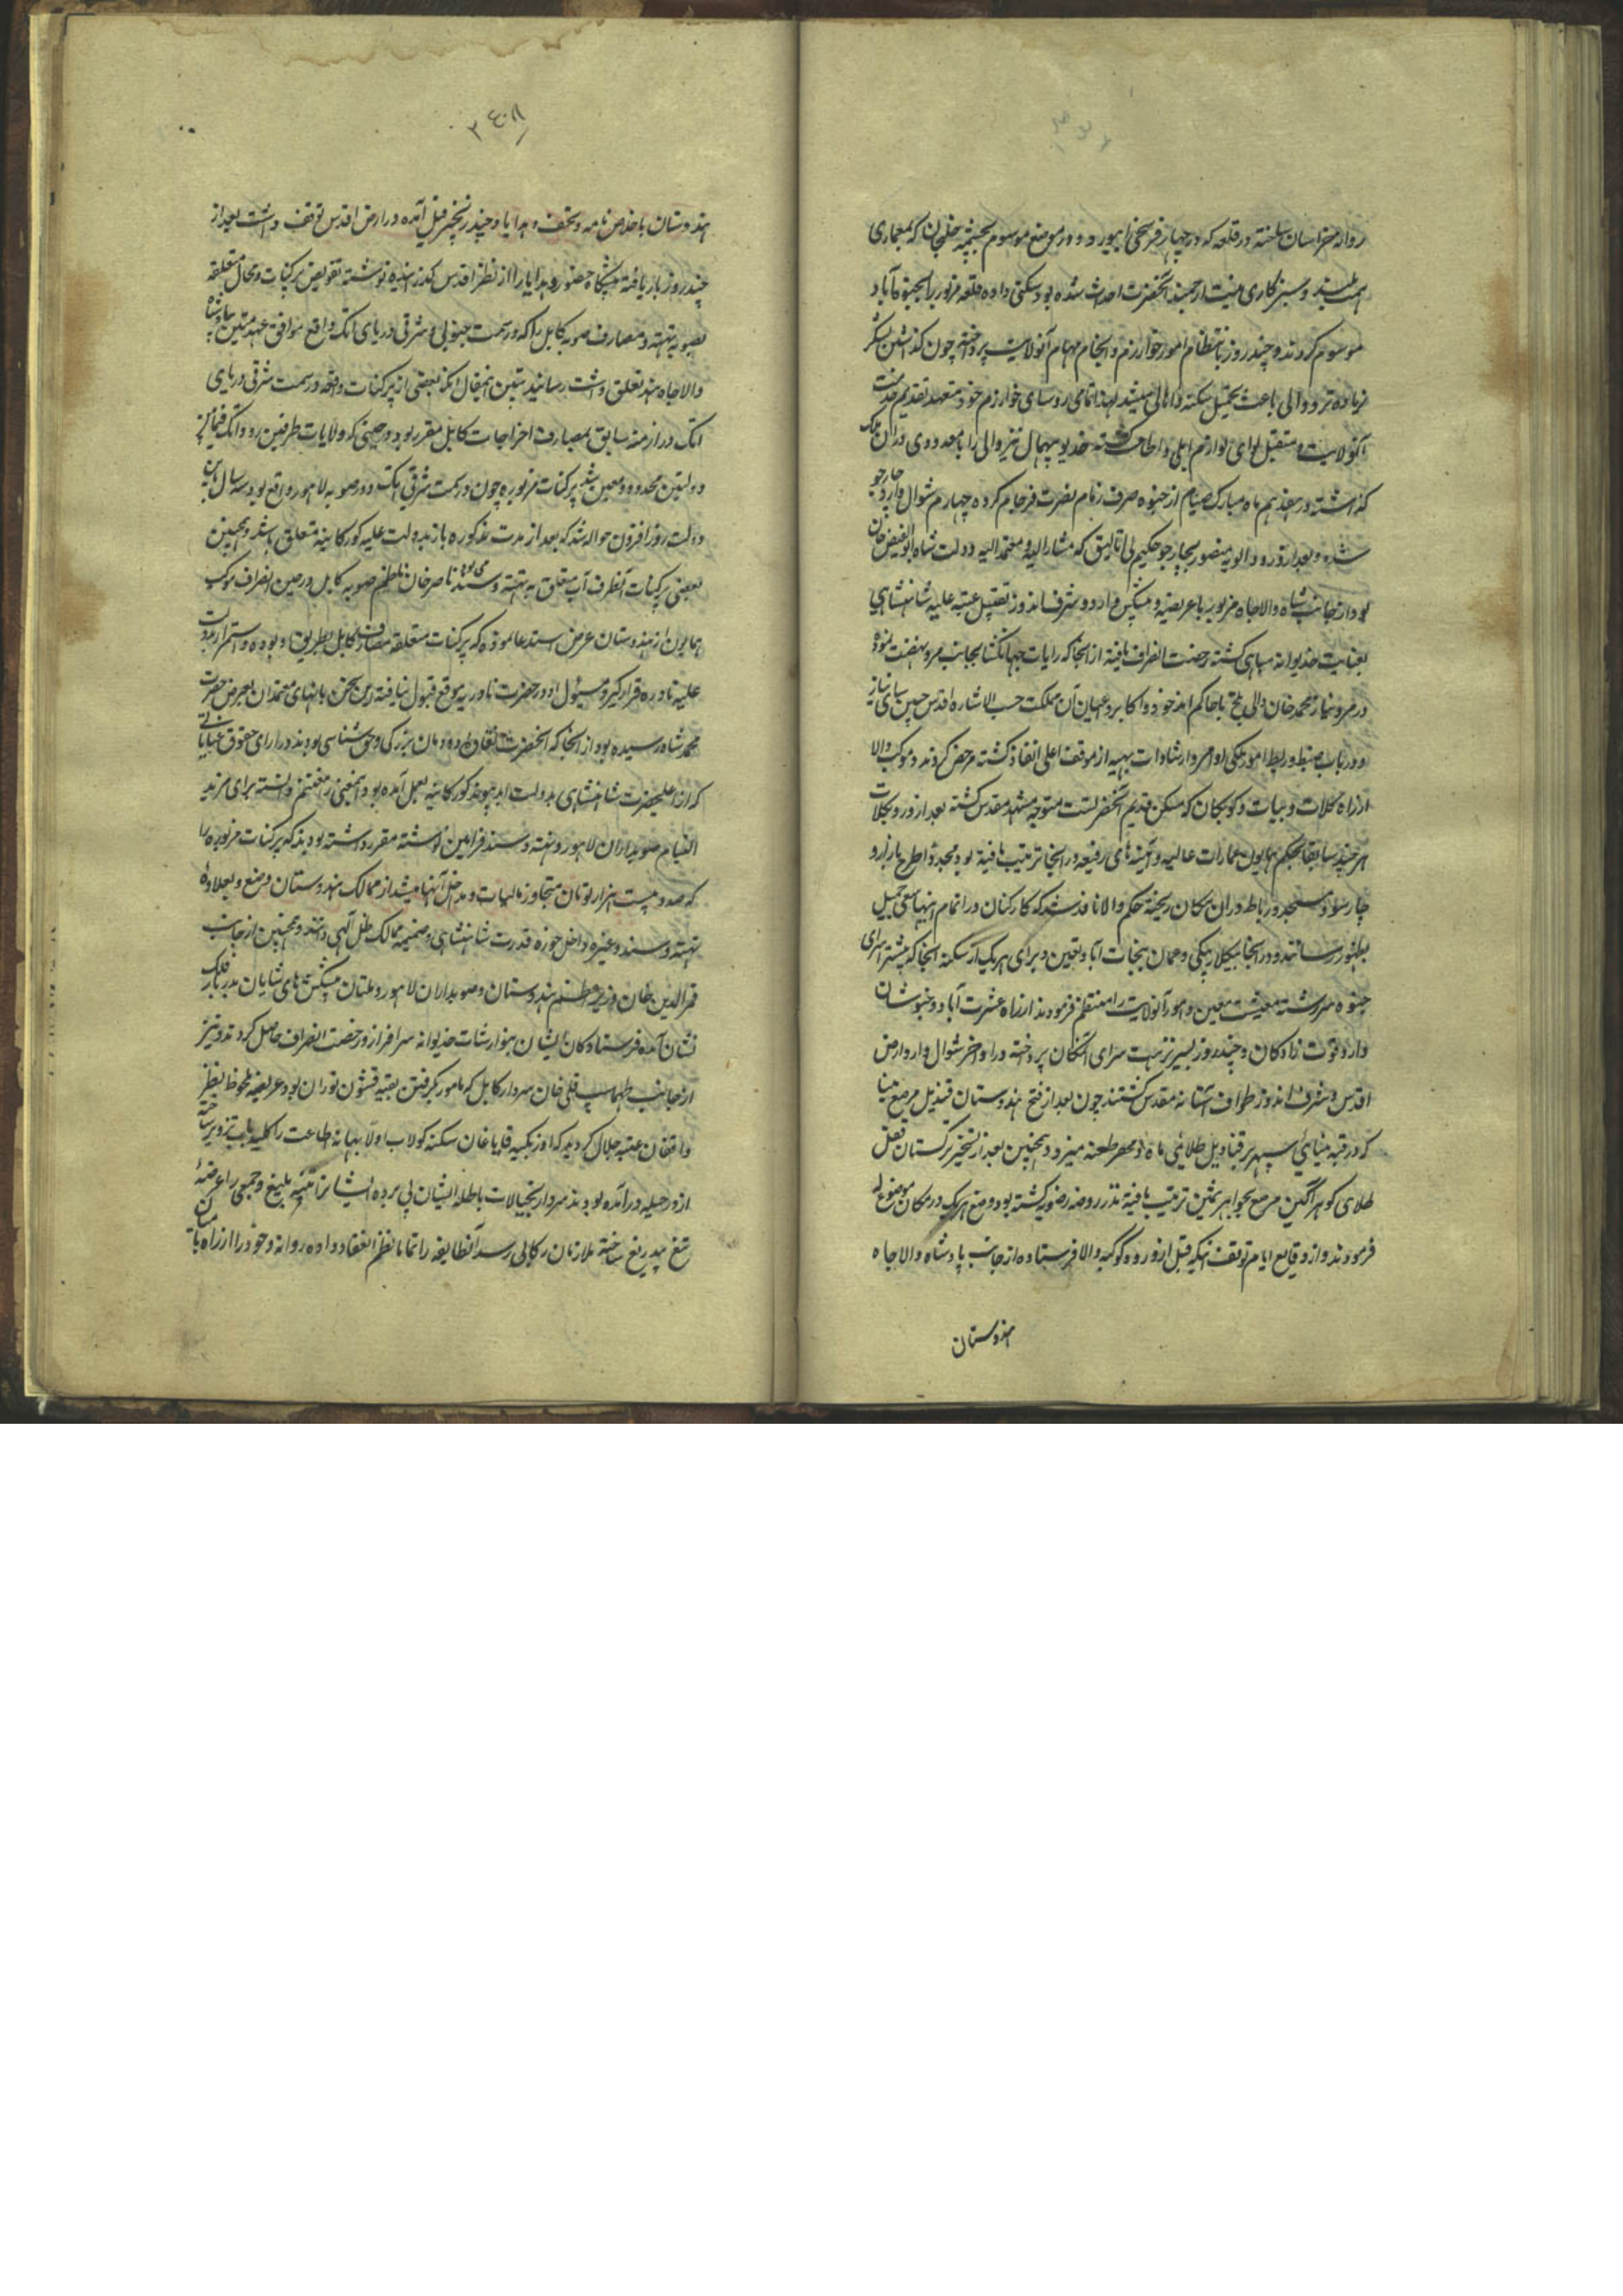 روانه خراسان ساخته در قلعه که در چهار فرسخی ابیورد و در موضع موسوم بچشمه خلنجان که بمعماری
همت بلند و سبزکاری میمنت ارجمند آنحضرت احداث شده بود سکنی داده قلعه مزبور را بخیوه آباد
موسوم کردند و چند روز بانتظام امور خوارزم و انجام مهام آنولایت پرداخته چون گذاشتن لشکر
زیاده تر و والی باعث تحمیل سکنه و اهالی میشد لهذا تمامی روسای خوارزم خود متعهد تقدیم خدمت
آنولایت و متقبل لوای لوازم ایلی و اطاعت گشته خدیو بیهمال نیز والی را با معدودی در آن ملک
گذاشته در هفدهم ماه مبارک صیام از خیوه صرف زمام نصرت فرجام کرده چهارم شوال وارد چارجو
شده و بعد از ورود الویه منصور بچارجو حکیم بی اتالیق که مشارالیه و معتمد الیه دولت شاه ابوالفیض خان
بود از جانب شاه والاجاه مزبور با عریضه و پیشکش وارد و شرف اندوز تقبیل عتبه علیه شاهنشاهی
بعنایت خدیوانه مباهی گشته رخصت انصراف یافته از آنجا که رایات جهانگشا بجانب مرو نهضت نموده
در مرو نیاز محمد خان والی بلخ با حاکم اندخود و اکابر و اعیان آن مملکت حسب الاشاره اقدس جبین سای نیاز
و در باب ضبط و ربط امور ملکی اوامر و ارشادات بهیه از موقف اعلی انفاذ گشته مرخص کردند و موکب والا
از راه کلات و میاب و کوبکان که مسکن قدیم آنحضرتست متوجه مشهد مقدس گشته بعد از ورود بکلات
هر چند سابقا بحکم همایون عمارات عالیه و ابنیه های رفیعه در آنجا ترتیب یافته بود مجددا طرح بازار و
چارسو و مسجد و رباط در آن مکان ریخته حکم والا نافذ شد که کارکنان در اتمام اینها سعی جمیل
بظهور رسانند و در آنجا بیکلاربیکی و همان بنجات آباد تعیین و برای هر یک از سکنه آنجا که پیشتر اسرای
خیوه سررشته معیشت معین و امور آنولایت را منتظم فرمودند از راه عشرت آباد و خبوشان
وارد قوت زادکان و چند روز بسیر نزهت سرای النکان پرداخته در اواخر شوال وارد ارض
اقدس و شرف اندوز طواف آستانه مقدس گشتند چون بعد از فتح هندوستان قندیل مرصع مینا
که در قبه مینای سپهر بر قنادیل طلائی ماه و مهر طعنه میزد و همچنین بعد از تسخیر ترکستان قفل
طلای گوهر آگین مرصع بجواهر ثمین ترتیب یافته نذر روضه رضویه گشته بود وضع هر یک در مکان موضوع له
فرمودند و از وقایع ایام توقف اینکه قبل از ورود کوکبه والا فرستاده از جانب پادشاه والاجاه
هندوستان
هندوستان با خلاص نامه و تحف و هدایا و چند زنجیر فیل آمده در ارض اقدس توقف داشت بعد از
چند روز باریافته پیشگاه حضور و هدایا را از نظر اقدس گذرانیده نوشته تفویض پرکنات و محال متعلقه
بصوبه تهته و مصارف صوبه کابل را که در سمت جنوبی و شرقی دریای اتک واقع موافق عهد متین بپادشاه
والاجاه هند تعلق داشت رسانید تبیین اینمقال آنکه بعضی از پرکنات واقعه در سمت شرقی دریای
اتک در ازمنه سابق بمصارف اخراجات کابل مقرر بود در حینی که ولایات طرفین رود اتک فیمابین
دولتین محدود و معین شد پرکنات مزبوره چون در سمت شرقی اتک و در صوبه لاهور واقع بود سه ساله باین
دولت روزافزون حواله شد که بعد از مدت مذکوره باز بدولت علیه کورکانیه متعلق باشد و همچنین
بعضی پرکنات آنطرف آب متعلق به تهته و سند می بود ناصر خان ناظم صوبه کابل در حین انصراف موکب
همایون از هندوستان عرض استدعا نموده که پرکنات متعلقه مضاف کابل بطریق او بوده و استمرار بدولت
علیه نادره قرار گیرد مسئول او در حضرت نادریه موقع قبول نیافته این سخن بانهای معتمدان بعرض حضرت
محمد شاه رسیده بود از آنجا که آنحضرت نقاوه دودمان بزرگی و حق شناسی بودند در ازای حقوق عنایاتی
که از اعلیحضرت شاهنشاهی بدولت ابد پیوند کورکانیه بعمل آمده بود اینمعنی را مغتنم دانسته برای مزید
التیام صوبداران لاهور و تهته و سند فرامین نوشته مقرر داشته بودند که پرکنات مزبوره را
که صد و بیست هزار تومان متجاوز مالیات و مداخل آنها میشد از ممالک هندوستان وضع و بعلاوه
تهته و سند و غیره داخل حوزه قدرت شاهنشاهی و ضمیمه ممالک ظل الهی دانند و همچنین از جانب
قمرالدین خان وزیر اعظم هندوستان و صوبداران لاهور و ملتان پیشکش های شایان بدربار فلک
نشان آمده فرستادکان ایشان بنوازشات خدیوانه سرافراز و رخصت انصراف حاصل کردند و نیز
از جانب طهماسب قلی خان سردار کابل که مامور بگرفتن بقیه قشون توران بود عریضه ملحوظ نظر
واقفان عتبه جلال گردید که اوزبکیه قاپاغان سکنه کولاب اولا ببهانه اطاعت را کلید باب تزویر ساخته
از در حیله درآمده بودند سردار بخیالات باطله ایشان پی برده ایشانرا تنبیه بلیغ و جمعی را عرضه
تیغ بیدریغ ساخته ملازمان رکابی رسد آنطایفه را تماما نظم انعقاد داده روانه و خود را از راه